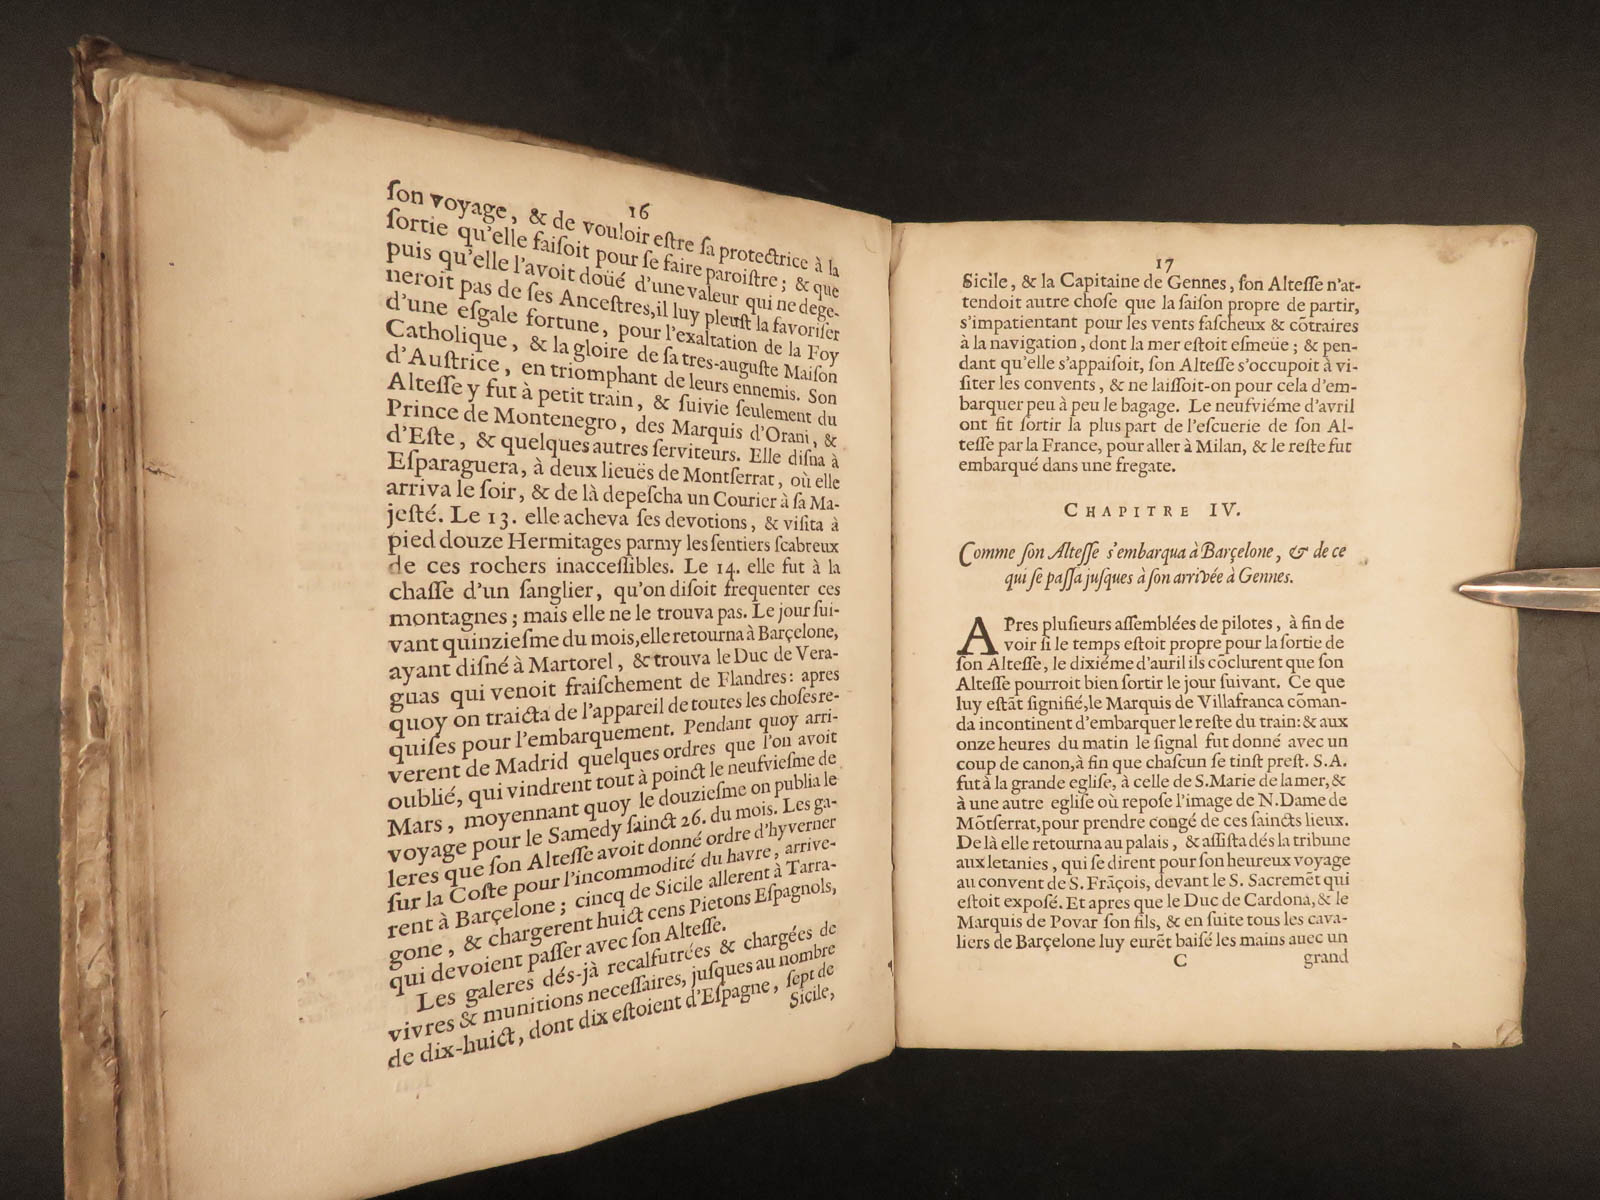 16
ſon voyage, & de vouloir eſtre ſa protectrice à la
ſortie qu'elle faiſoit pour ſe faire paroiſtre; & que
puis qu'elle l'avoit doüé d'une valeur qui ne dege-
neroit pas de ſes Anceſtres, il luy pleuſt la favoriſer
d'une eſgale fortune, pour l'exaltation de la Foy
Catholique, & la gloire de ſa tres-auguſte Maiſon
d'Auſtrice, en triomphant de leurs ennemis. Son
Alteſſe y fut à petit train, & ſuivie ſeulement du
Prince de Montenegro, des Marquis d'Orani, &
d'Eſte, & quelques autres ſerviteurs. Elle diſna à
Eſparaguera, à deux lieuës de Montſerrat, où elle
arriva le ſoir, & de là depeſcha un Courier à ſa Ma-
jeſté. Le 13. elle acheva ſes devotions, & viſita à
pied douze Hermitages parmy les ſentiers ſcabreux
de ces rochers inacceſſibles. Le 14. elle fut à la
chaſſe d'un ſanglier, qu'on diſoit frequenter ces
montagnes; mais elle ne le trouva pas. Le jour ſui-
vant quinzieſme du mois, elle retourna à Barçelone,
ayant diſné à Martorel, & trouva le Duc de Vera-
guas qui venoit fraiſchement de Flandres: apres
quoy on traicta de l'appareil de toutes les choſes re-
quiſes pour l'embarquement. Pendant quoy arri-
verent de Madrid quelques ordres que l'on avoit
oublié, qui vindrent tout à poinct le neufvieſme de
Mars, moyennant quoy le douzieſme on publia le
voyage pour le Samedy ſainct 26. du mois. Les ga-
leres que ſon Alteſſe avoit donné ordre d'hyverner
ſur la Coſte pour l'incommodité du havre, arrive-
rent à Barçelone; cincq de Sicile allerent à Tarra-
gone, & chargerent huict cens Pietons Eſpagnols,
qui devoient paſſer avec ſon Alteſſe.
Les galeres dés-jà recalfutrées & chargées de
vivres & munitions neceſſaires, juſques au nombre
de dix-huict, dont dix eſtoient d'Eſpagne, ſept de
Sicile,
17
Sicile, & la Capitaine de Gennes, ſon Alteſſe n'at-
tendoit autre choſe que la ſaiſon propre de partir,
s'impatientant pour les vents faſcheux & cõtraires
à la navigation, dont la mer eſtoit eſmeüe; & pen-
dant qu'elle s'appaiſoit, ſon Alteſſe s'occupoit à vi-
ſiter les convents, & ne laiſſoit-on pour cela d'em-
barquer peu à peu le bagage. Le neufviéme d'avril
ont fit ſortir la plus part de l'eſcuerie de ſon Al-
teſſe par la France, pour aller à Milan, & le reſte fut
embarqué dans une fregate.
CHAPITRE IV.
Comme ſon Alteſſe s'embarqua à Barçelone, & de ce
qui ſe paſſa juſques à ſon arrivée à Gennes.
APres pluſieurs aſſemblées de pilotes, à fin de
voir ſi le temps eſtoit propre pour la ſortie de
ſon Alteſſe, le dixiéme d'auril ils cõclurent que ſon
Alteſſe pourroit bien ſortir le jour ſuivant. Ce que
luy eſtãt ſignifié, le Marquis de Villafranca cõman-
da incontinent d'embarquer le reſte du train: & aux
onze heures du matin le ſignal fut donné avec un
coup de canon, à fin que chaſcun ſe tinſt preſt. S.A.
fut à la grande egliſe, à celle de S. Marie de la mer, &
à une autre egliſe où repoſe l'image de N. Dame de
Mõtſerrat, pour prendre congé de ces ſaincts lieux.
De là elle retourna au palais, & aſſiſta dés la tribune
aux letanies, qui ſe dirent pour ſon heureux voyage
au convent de S. Frãçois, devant le S. Sacremẽt qui
eſtoit expoſé. Et apres que le Duc de Cardona, & le
Marquis de Povar ſon fils, & en ſuite tous les cava-
liers de Barçelone luy eurẽt baiſé les mains auec un
C
grand